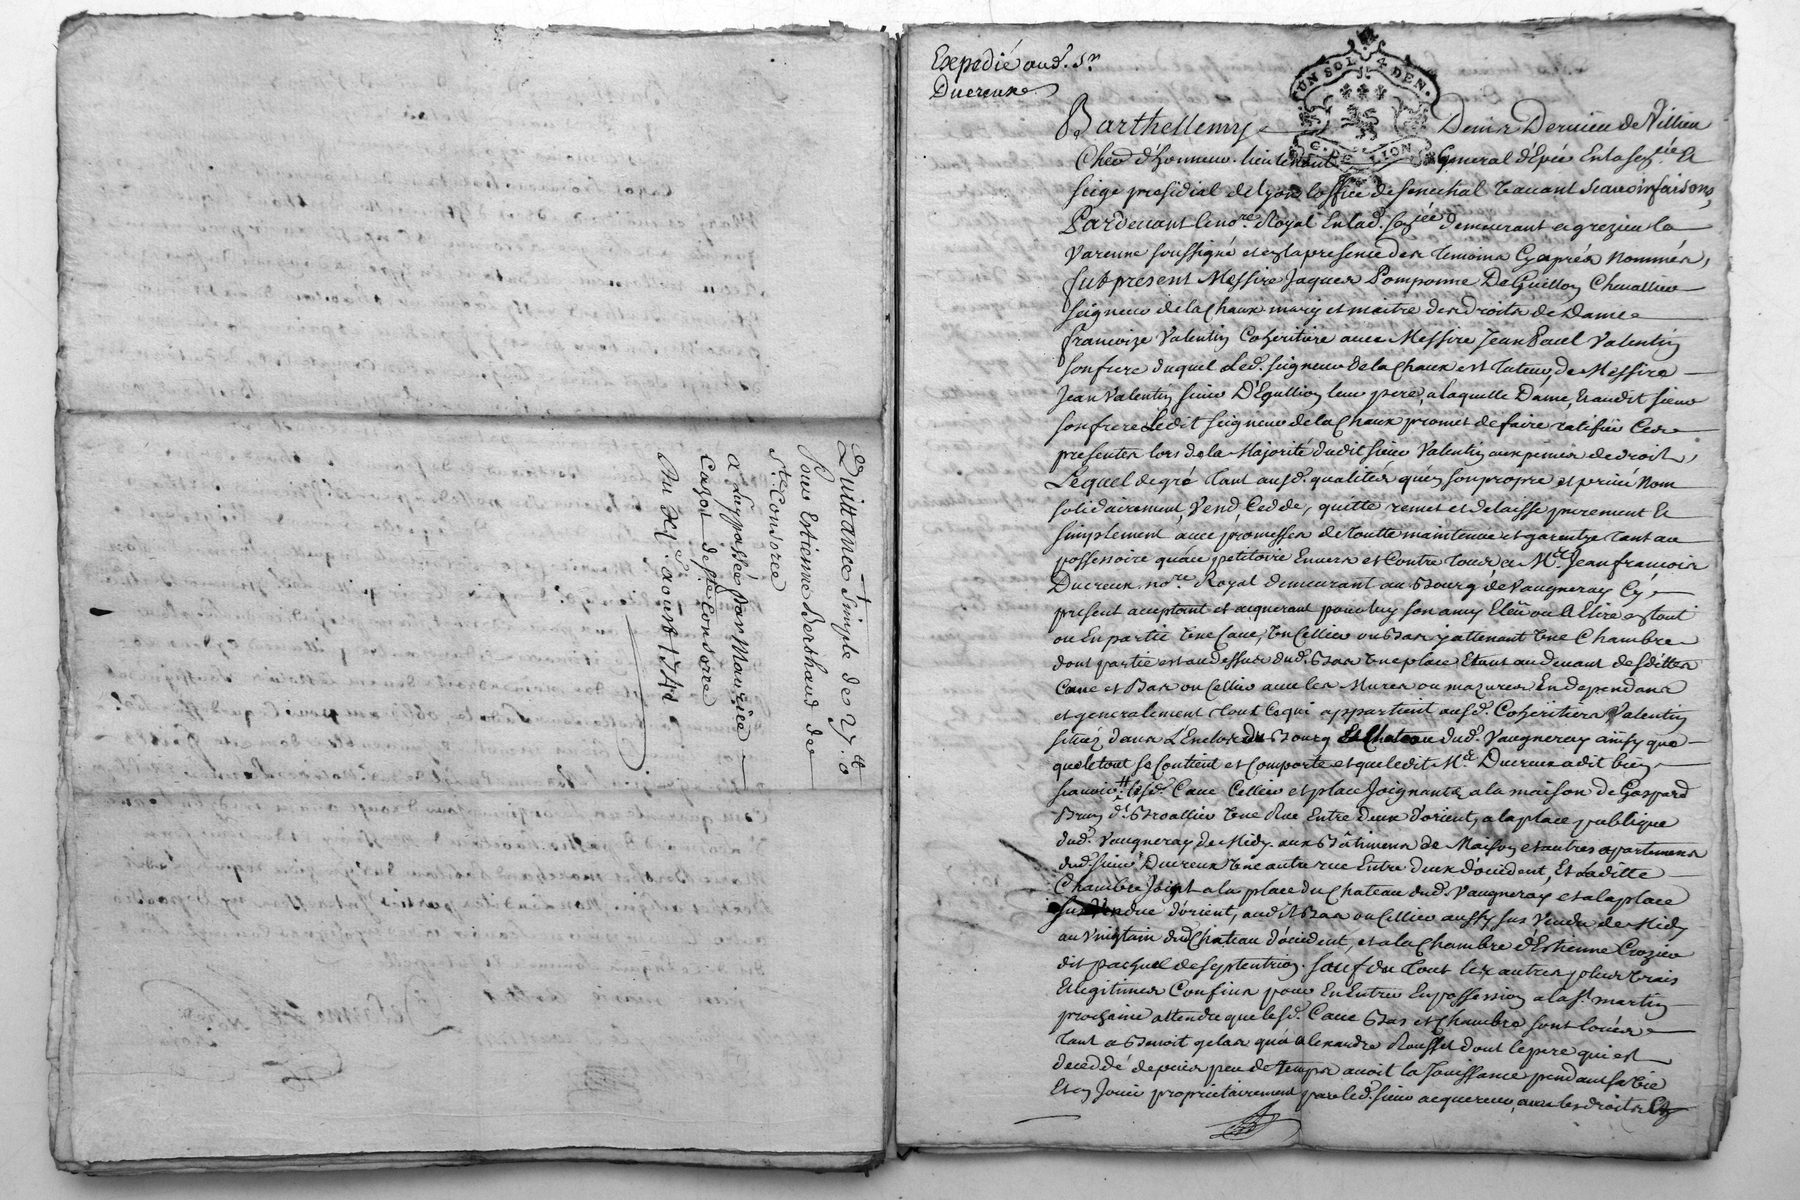 Quittance Simple de 27 lt 0
Pour Estienne Berthaud de
Ste Consorce
a luy passée par Maurice
Cazot de Ste Consorce
Du XI aoust 1741
Expedié aud. Sr
Ducreux
UN SOL 4 DEN.
G. DE LION
Barthellemy Denis Dervieu de Villieu
Chevr d'honneur lieutenant General d'Epée En la senée Et
siege presidial de Lyon l'office de senechal vacant scavoir faisons,
Pardevant le nore Royal En lad. senée demeurant a grezieu la
Varenne soussigné et en la presence des temoins Cy après Nommés,
fut présent Messire Jaques Pomponne De Guillon Chevallier
seigneur de la Chaux mary et maitre des droits de Dame
francoise Valentin Coheritiere avec Messire Jean Paul Valentin
son frere duquel led. seigneur de la Chaux est tuteur, de Messire
Jean Valentin sieur D'Eguillion leur pere, a laquelle Dame, Et audit sieur
son frere Ledit seigneur de la Chaux promet de faire ratiffier Ces
presentes lors de la Majorité dudit sieur Valentin aux peines de droit,
Lequel de gré tant ausd. qualités qu'en son propre et privé Nom
solidairement, Vend, Cedde, quitte remet et delaisse purement Et
simplement avec promesses de toutte maintenue et garentye tant au
possessoire qu'au petitoire Envers et Contre tous a Me Jean francois
Ducreux nore Royal demeurant au Bourg de Vaugneray Cy
present aceptant et aquerant pour luy son amy Eleü ou A Elire en tout
ou En partie Une Cave, Un Cellier ou Bas y attenant Une Chambre
dont partie est au dessus dud. Bas Une place Etant au devant desdittes
Cave et Bas ou Cellier avec les Mures ou mazures En dependans
et generalement tout Ce qui appartient ausd. Coheritiers Valentin
situez dans L'Enclos du Bourg Et Chateau dud. Vaugneray ainsy que
que le tout se Contient et Comporte et que ledit Me Ducreux a dit bien
scavoir, lesd. Cave Cellier et place Joignants a la maison de Gaspard
Brun dt Broallier Une Rue Entre deux d'orient, a la place publique
dud. Vaugneray de Midy. aux Bâtimens de Maison et autres apartemens
dud. sieur Ducreux Une autre rue Entre deux d'occident, Et Laditte
Chambre Joint a la place du Chateau dud. Vaugneray et a la place
sus Vendue d'orient, audit Bas ou Cellier aussy sus Vendu de Midy
au Vingtain dud. Chateau d'occident, et a la Chambre d'Estienne Crozier
dit paquel de septentrion. sauf du tout les autres plus Vrais
Et legitimes Confins pour En Entrer En possession a la St. martin
prochaine attendu que lesd. Cave Bas et Chambre sont loués
tant a Benoit gelas qu'a alexandre Rousset dont le pere qui est
deceddé depuis peu de temps avoit la Jouissance pendant sa Vie
Et en Jouir proprietairement par led. sieur acquereur, avec les droits Et